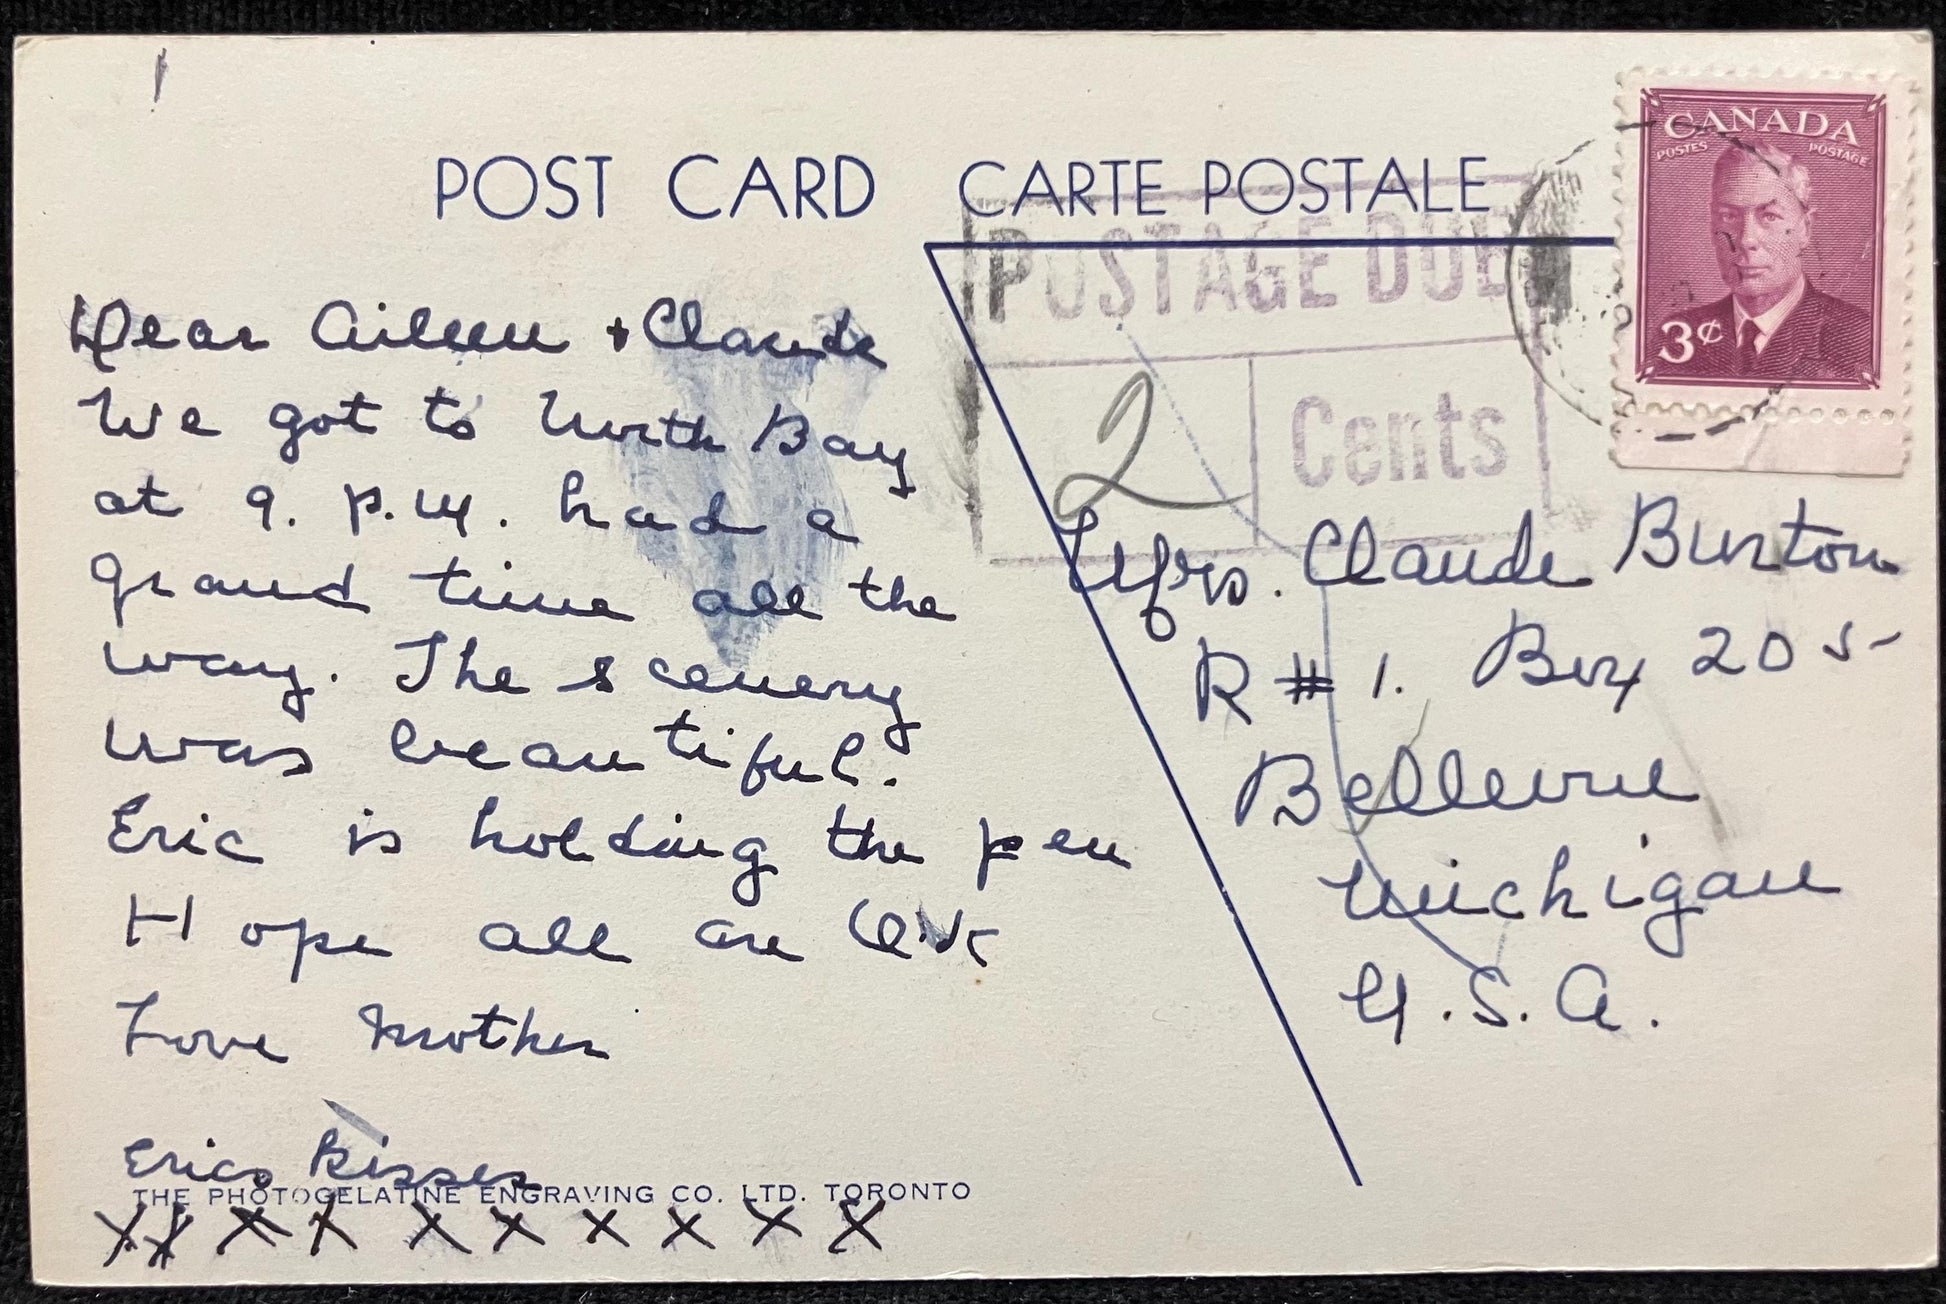 POST CARD CARTE POSTALE
CANADA
POSTES POSTAGE
3¢
POSTAGE DUE
2 Cents
Dear Aileen + Claude
We got to North Bay
at 9. P.M. had a
grand time all the
way. The scenery
was beautiful.
Eric is holding the pen
Hope all are O.K
Love Mother
Erics kisses
THE PHOTOGELATINE ENGRAVING CO. LTD. TORONTO
X X X X X X X X X X
Mrs. Claude Burton
R # 1. Box 205
Bellevue
Michigan
U.S.A.